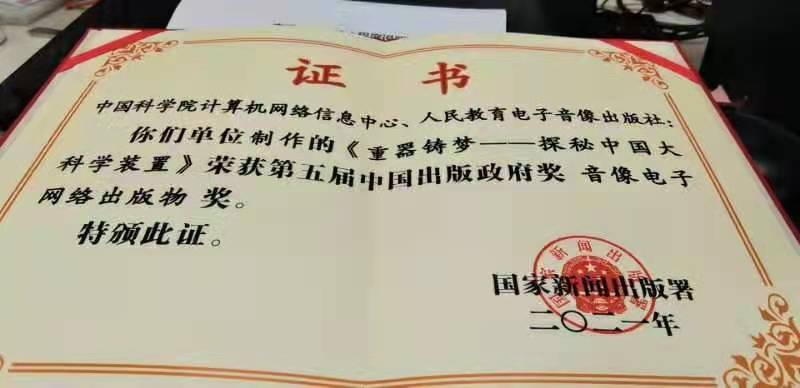 证书
中国科学院计算机网络信息中心、人民教育电子音像出版社：
你们单位制作的《重器铸梦——探秘中国大
科学装置》荣获第五届中国出版政府奖 音像电子
网络出版物 奖。
特颁此证。
国家新闻出版署
国家新闻出版署
二〇二一年